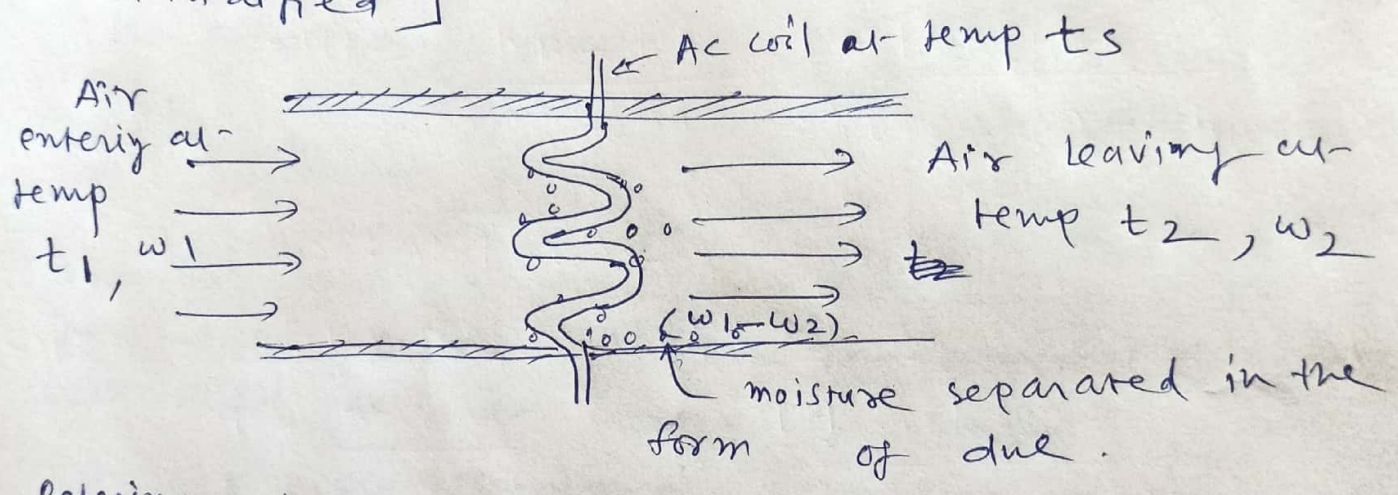 AC coil at temp ts
Air
entering at
temp
t1, w1
Air leaving at
temp t2, w2
(w1-w2)
moisture separated in the
form of due.